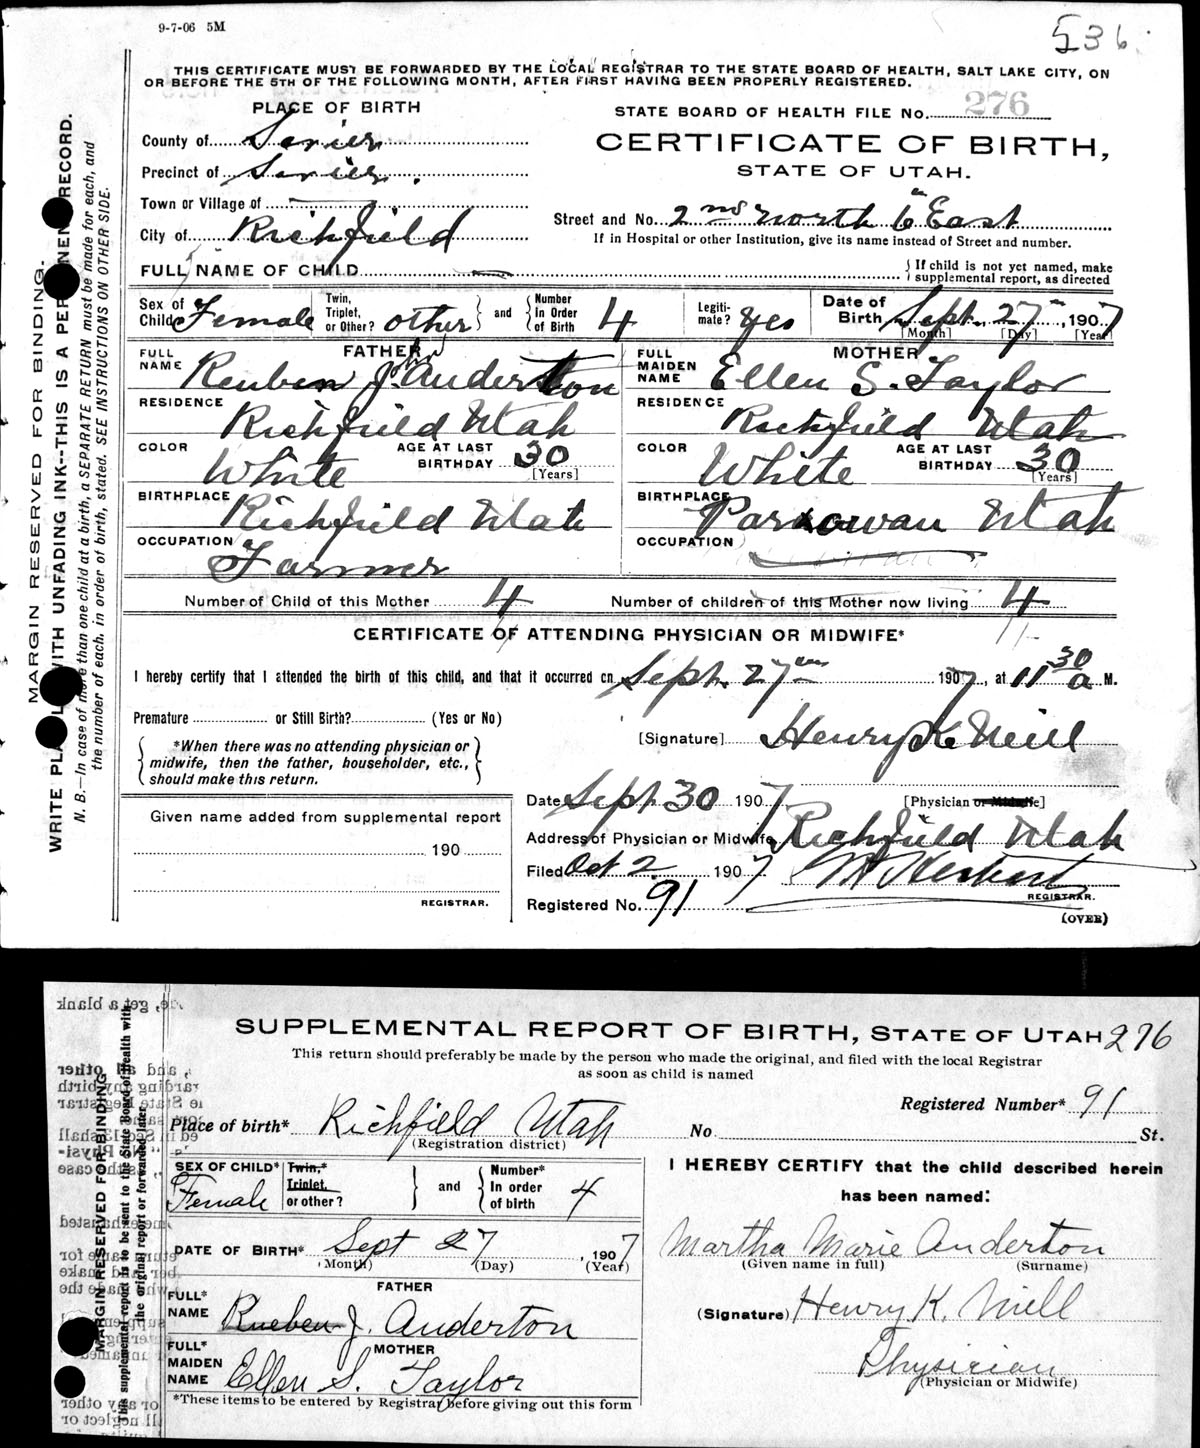 9-7-06 5M
536
THIS CERTIFICATE MUST BE FORWARDED BY THE LOCAL REGISTRAR TO THE STATE BOARD OF HEALTH, SALT LAKE CITY, ON
OR BEFORE THE 5TH OF THE FOLLOWING MONTH, AFTER FIRST HAVING BEEN PROPERLY REGISTERED.
PLACE OF BIRTH
STATE BOARD OF HEALTH FILE No. 276
County of Sevier
CERTIFICATE OF BIRTH,
Precinct of Sevier.
STATE OF UTAH.
Town or Village of
Street and No. 2nd North 6th East
City of Richfield
If in Hospital or other Institution, give its name instead of Street and number.
FULL NAME OF CHILD
If child is not yet named, make
supplemental report, as directed
Sex of Child Female
Twin, Triplet, or Other? other and Number In Order of Birth 4
Legitimate? Yes
Date of Birth Sept. 27th, 1907
[Month] [Day] [Year]
FATHER
FULL NAME Reuben J. Anderton
John
RESIDENCE Richfield Utah
COLOR White AGE AT LAST BIRTHDAY 30 [Years]
BIRTHPLACE Richfield Utah
OCCUPATION Farmer
MOTHER
FULL MAIDEN NAME Ellen S. Taylor
RESIDENCE Richfield Utah
COLOR White AGE AT LAST BIRTHDAY 30 [Years]
BIRTHPLACE Parowan Utah
OCCUPATION
Number of Child of this Mother 4 Number of children of this Mother now living 4
CERTIFICATE OF ATTENDING PHYSICIAN OR MIDWIFE*
I hereby certify that I attended the birth of this child, and that it occurred on Sept. 27 1907, at 11 30 a M.
Premature or Still Birth? (Yes or No)
[Signature] Henry K Neill
*When there was no attending physician or
midwife, then the father, householder, etc.,
should make this return.
Date Sept. 30 1907 [Physician or Midwife]
Given name added from supplemental report
190
REGISTRAR.
Address of Physician or Midwife Richfield Utah
Filed Oct 2 1907 Herbert
REGISTRAR.
Registered No. 91
(OVER)
MARGIN RESERVED FOR BINDING.
WRITE PLA WITH UNFADING INK--THIS IS A PER NEN RECORD.
N. B.—In case of more than one child at a birth, a SEPARATE RETURN must be made for each, and
the number of each, in order of birth, stated. SEE INSTRUCTIONS ON OTHER SIDE.
SUPPLEMENTAL REPORT OF BIRTH, STATE OF UTAH 276
This return should preferably be made by the person who made the original, and filed with the local Registrar
as soon as child is named
Registered Number* 91
Place of birth* Richfield Utah No St.
(Registration district)
SEX OF CHILD* Female
Twin,* Triplet, or other? and Number* In order of birth 4
I HEREBY CERTIFY that the child described herein
has been named:
DATE OF BIRTH* Sept 27, 1907
(Month) (Day) (Year)
Martha Marie Anderton
(Given name in full) (Surname)
FATHER
FULL* NAME Rueben J. Anderton
(Signature) Henry K. Neill
MOTHER
FULL* MAIDEN NAME Ellen S. Taylor
Physician
(Physician or Midwife)
*These items to be entered by Registrar before giving out this form
MARGIN RESERVED FOR BINDING
This supplemental report is to be sent to the State Board of Health with
the original report or forwarded later